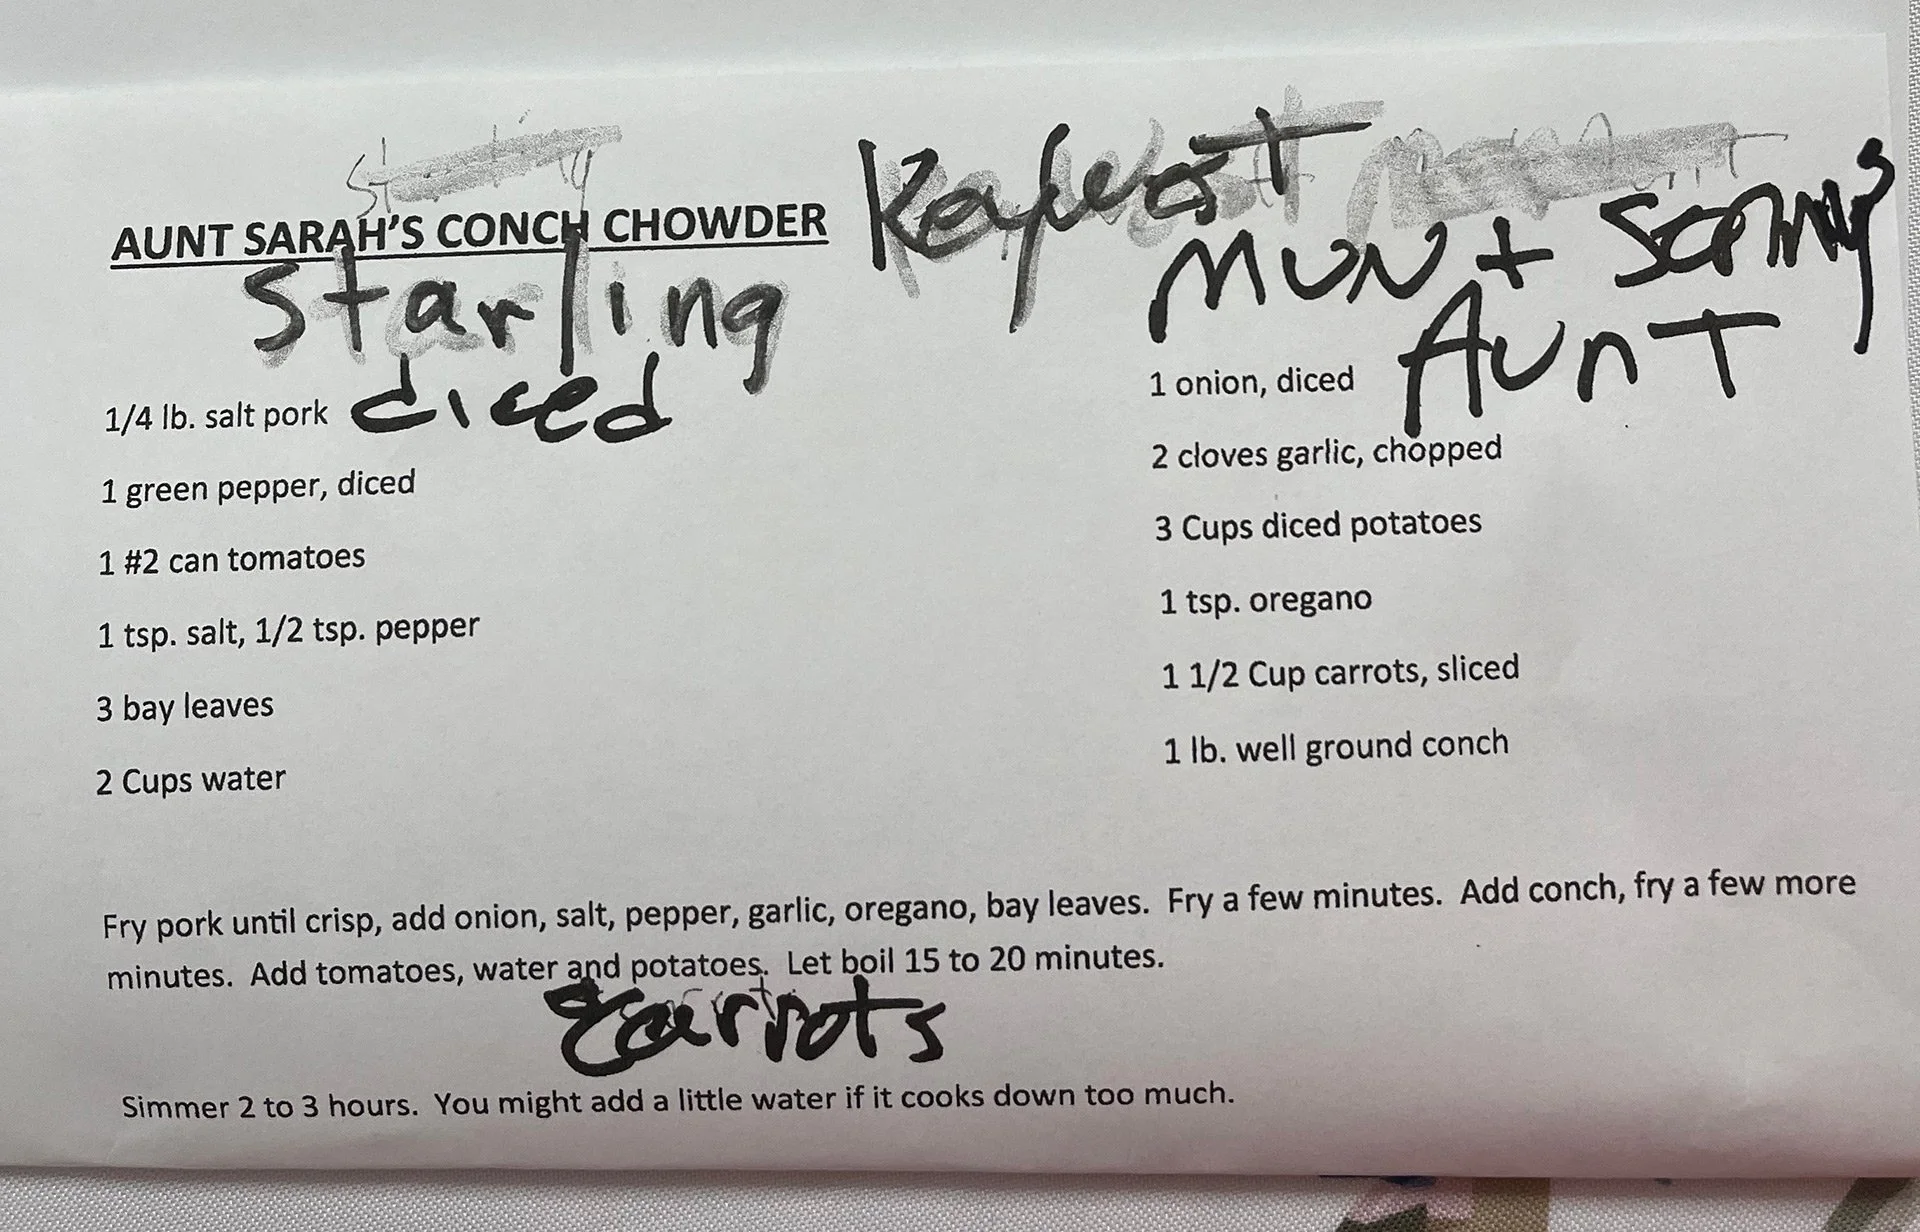 AUNT SARAH'S CONCH CHOWDER
Starling
MUN + Sonny's
AunT
1/4 lb. salt pork diced
1 onion, diced
1 green pepper, diced
2 cloves garlic, chopped
1 #2 can tomatoes
3 Cups diced potatoes
1 tsp. salt, 1/2 tsp. pepper
1 tsp. oregano
3 bay leaves
1 1/2 Cup carrots, sliced
2 Cups water
1 lb. well ground conch
Fry pork until crisp, add onion, salt, pepper, garlic, oregano, bay leaves. Fry a few minutes. Add conch, fry a few more
minutes. Add tomatoes, water and potatoes. Let boil 15 to 20 minutes.
carrots
Simmer 2 to 3 hours. You might add a little water if it cooks down too much.